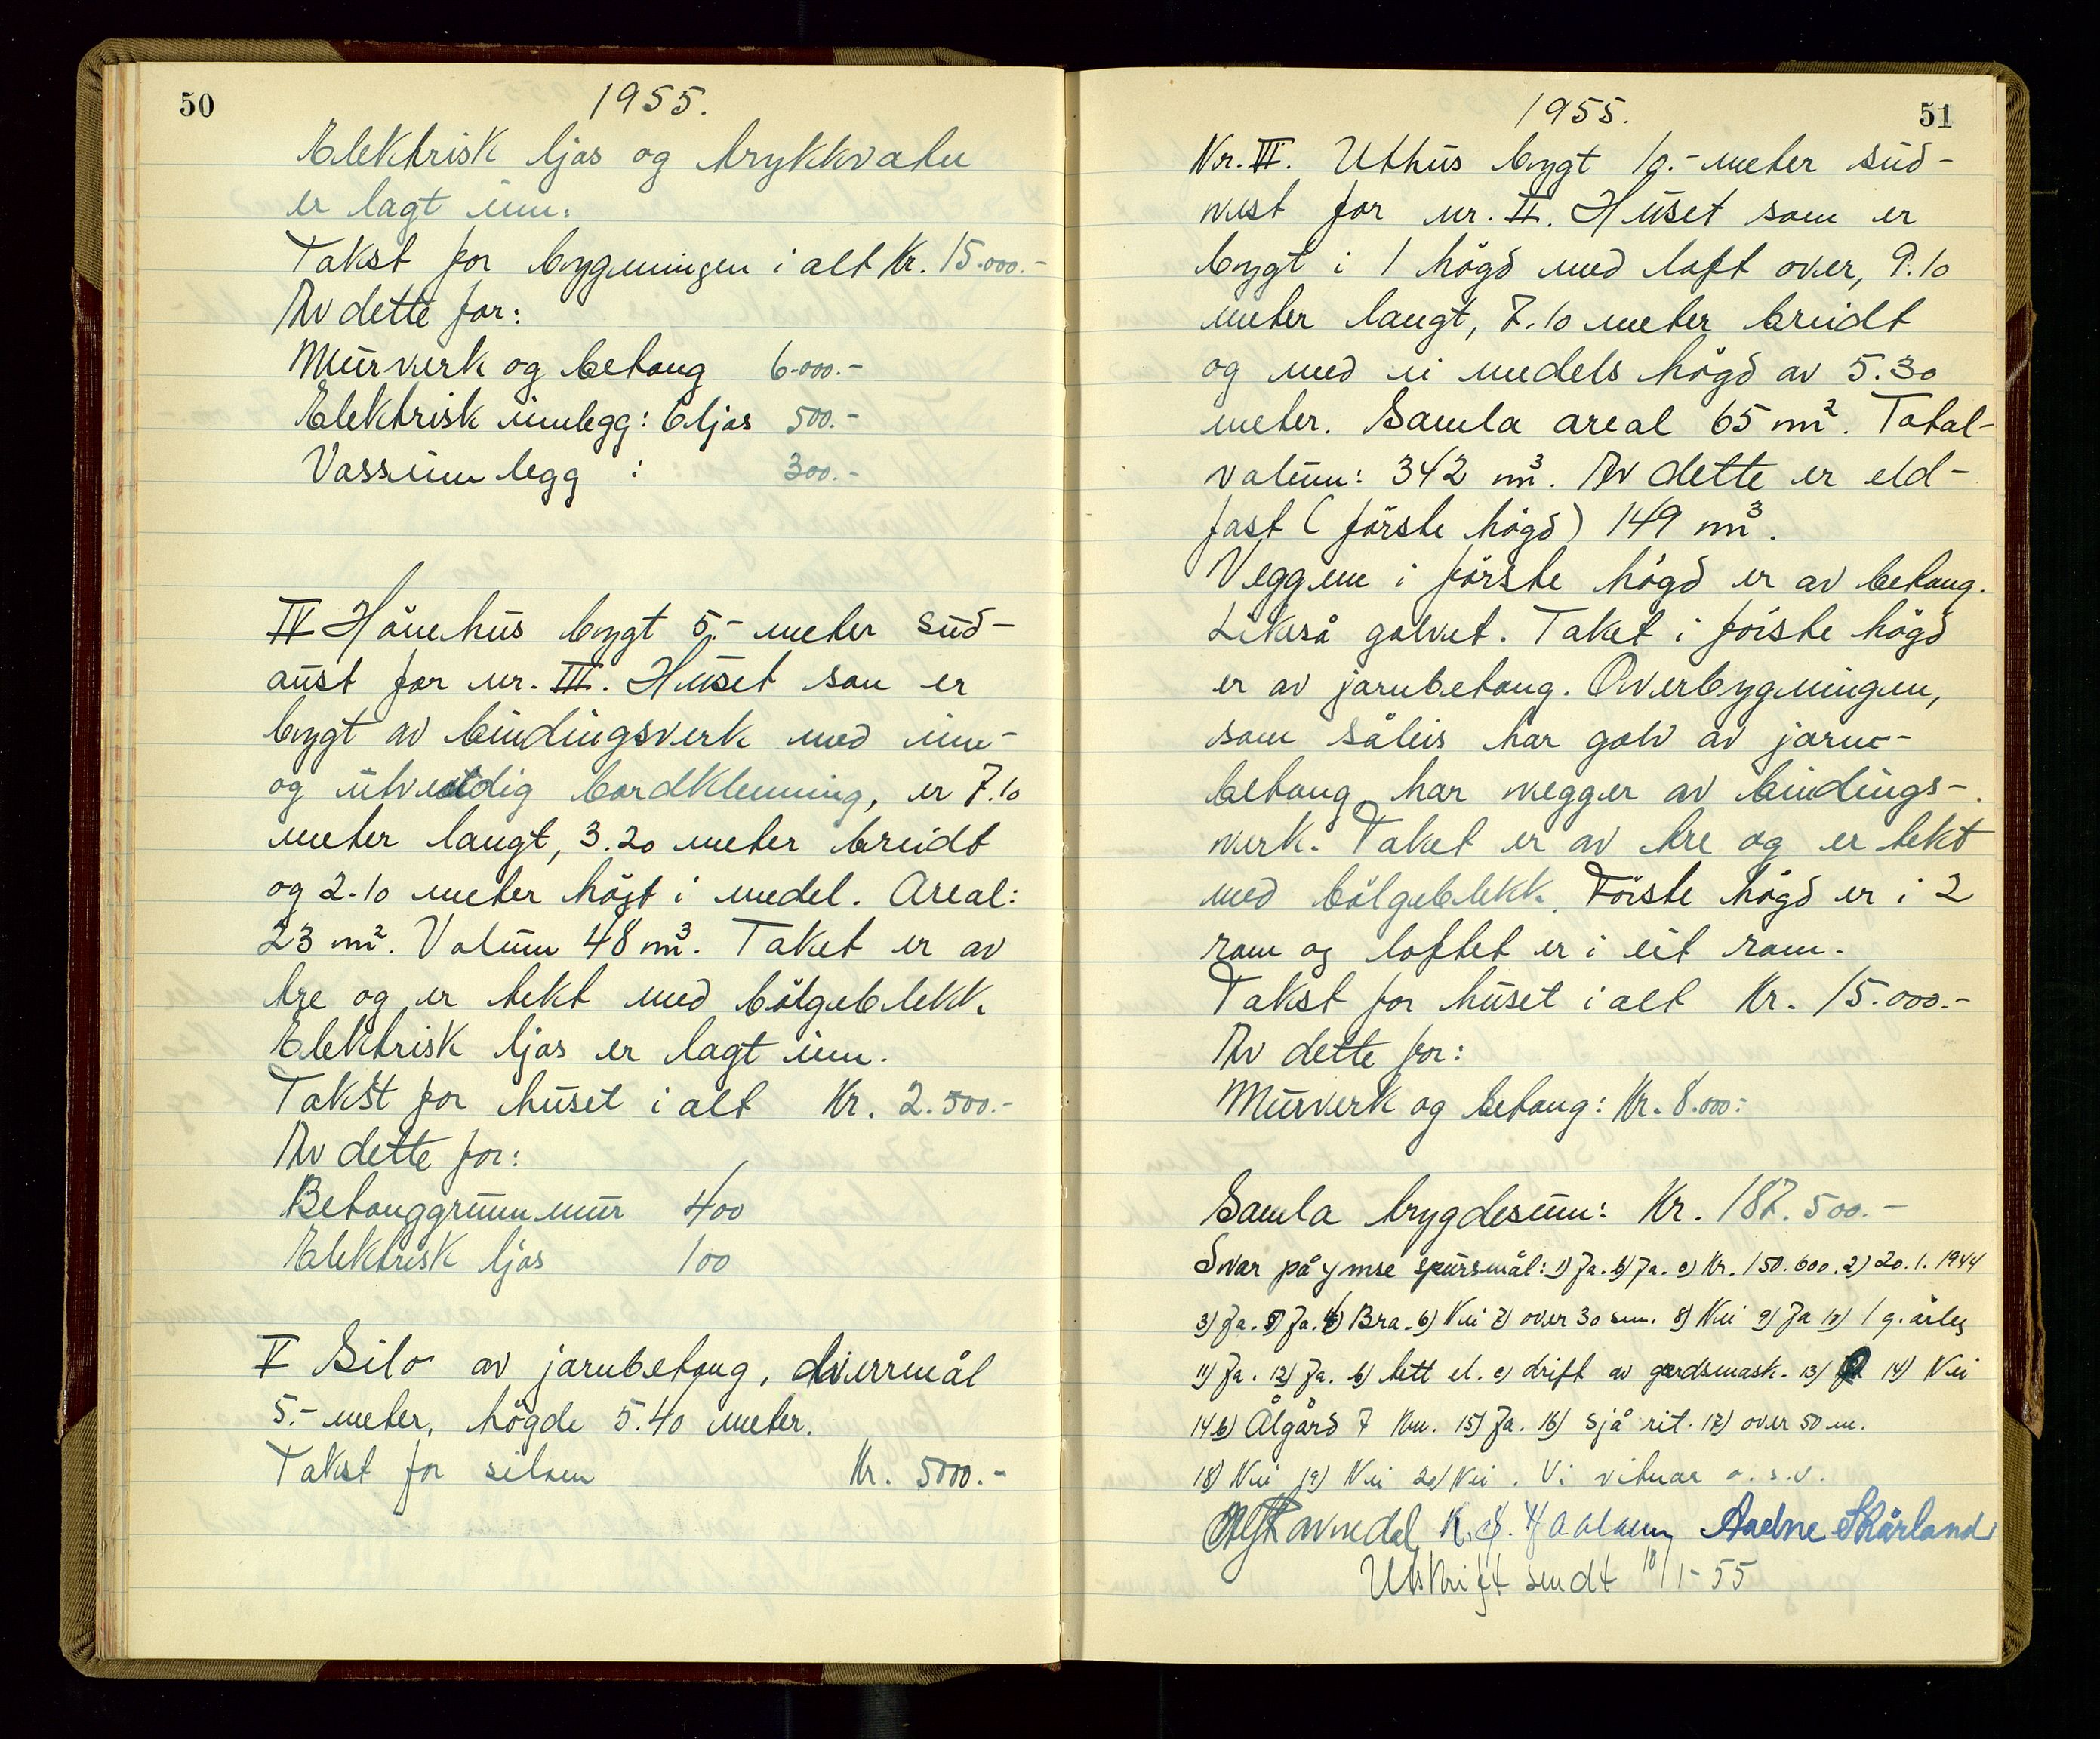 50
1955.
Elektrisk ljos og trykkvatn
er lagt inn.
Takst for bygningen i alt Kr. 15.000.-
Av dette for:
Murverk og betong 6.000.-
Elektrisk innlegg: Eljos 500.-
Vassinnlegg : 300.-
IV Hönehus bygt 5.- meter sud-
aust for nr. III. Huset som er
bygt av bindingsverk med inn-
og utvendig bordkleuning, er 7.10
meter langt, 3.20 meter breidt
og 2.10 meter högt i medel. Areal:
23 m². Volum 48 m³. Taket er av
tre og er tekt med bölgeblekk.
Elektrisk ljos er lagt inn.
Takst for huset i alt Kr. 2.500.-
Av dette for:
Betonggrunnmur 400
Elektrisk ljos 100
V Silo av jarnbetong, dverrmål
5.- meter, högde 5.40 meter.
Takst for siloen Kr. 5000.-
1955.
51
Nr. VI. Uthus bygt 10.- meter sud-
vest for nr. II. Huset som er
bygt i 1 högd med loft over, 9.10
meter langt, 7.10 meter breidt
og med ei medels högd av 5.30
meter. Samla areal 65 m². Total-
volum: 342 m³. Av dette er eld-
fast (förste högd) 149 m³.
Veggene i förste högd er av betong.
Likeså golvet. Taket i förste högd
er av jarnbetong. Overbygningen,
som såleis har golv av jarn-
betong har vegger av bindings-
verk. Taket er av tre og er tekt
med bölgeblekk. Förste högd er i 2
rom og loftet er i eit rom.
Takst for huset i alt Kr. 15.000.-
Av dette for:
Murverk og betong: Kr. 8.000.-
Samla trygdesum: Kr. 187.500.-
Svar på ymse spursmål: 1) Ja. b) Ja. c) Kr. 150.600. 2) 20.1.1944
3) Ja. Ja. Bra. 6) Nei 7) over 30 sm. 8) Nei 9) Ja 10) 1 g. årleg
11) Ja. 12) Ja. b) lett el. c) drift av gardsmask. 13) 14) Nei
14 b) Ålgård 7 km. 15) Ja. 16) Sjå rit. 17) over 50 m.
18) Nei 19) Nei 20) Nei. Vi vitnar o.s.v.
Aadne Skårland
Utskrift sendt 10/1-55